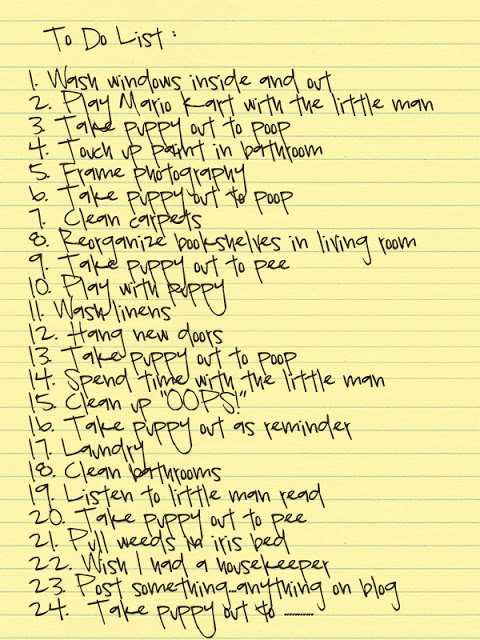 To Do List:
1. Wash windows inside and out
2. Play Mario Kart with the little man
3. Take puppy out to poop
4. Touch up paint in bathroom
5. Frame photography
6. Take puppy out to poop
7. Clean carpets
8. Reorganize bookshelves in living room
9. Take puppy out to pee
10. Play with puppy
11. Wash linens
12. Hang new doors
13. Take puppy out to poop
14. Spend time with the little man
15. Clean up "OOPS!"
16. Take puppy out as reminder
17. Laundry
18. Clean bathrooms
19. Listen to little man read
20. Take puppy out to pee
21. Pull weeds in iris bed
22. Wish I had a housekeeper
23. Post something...anything on blog
24. Take puppy out to ..........